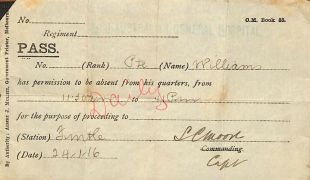 No.
G.M. Book 83.
Regiment
PASS.
No. (Rank) Pte (Name) Williams
has permission to be absent from his quarters, from
to
Daily
for the purpose of proceeding to
(Station)
(Date) 24/1/16
Commanding.
Capt
By Authority: Albert J. Mullett, Government Printer, Melbourne.